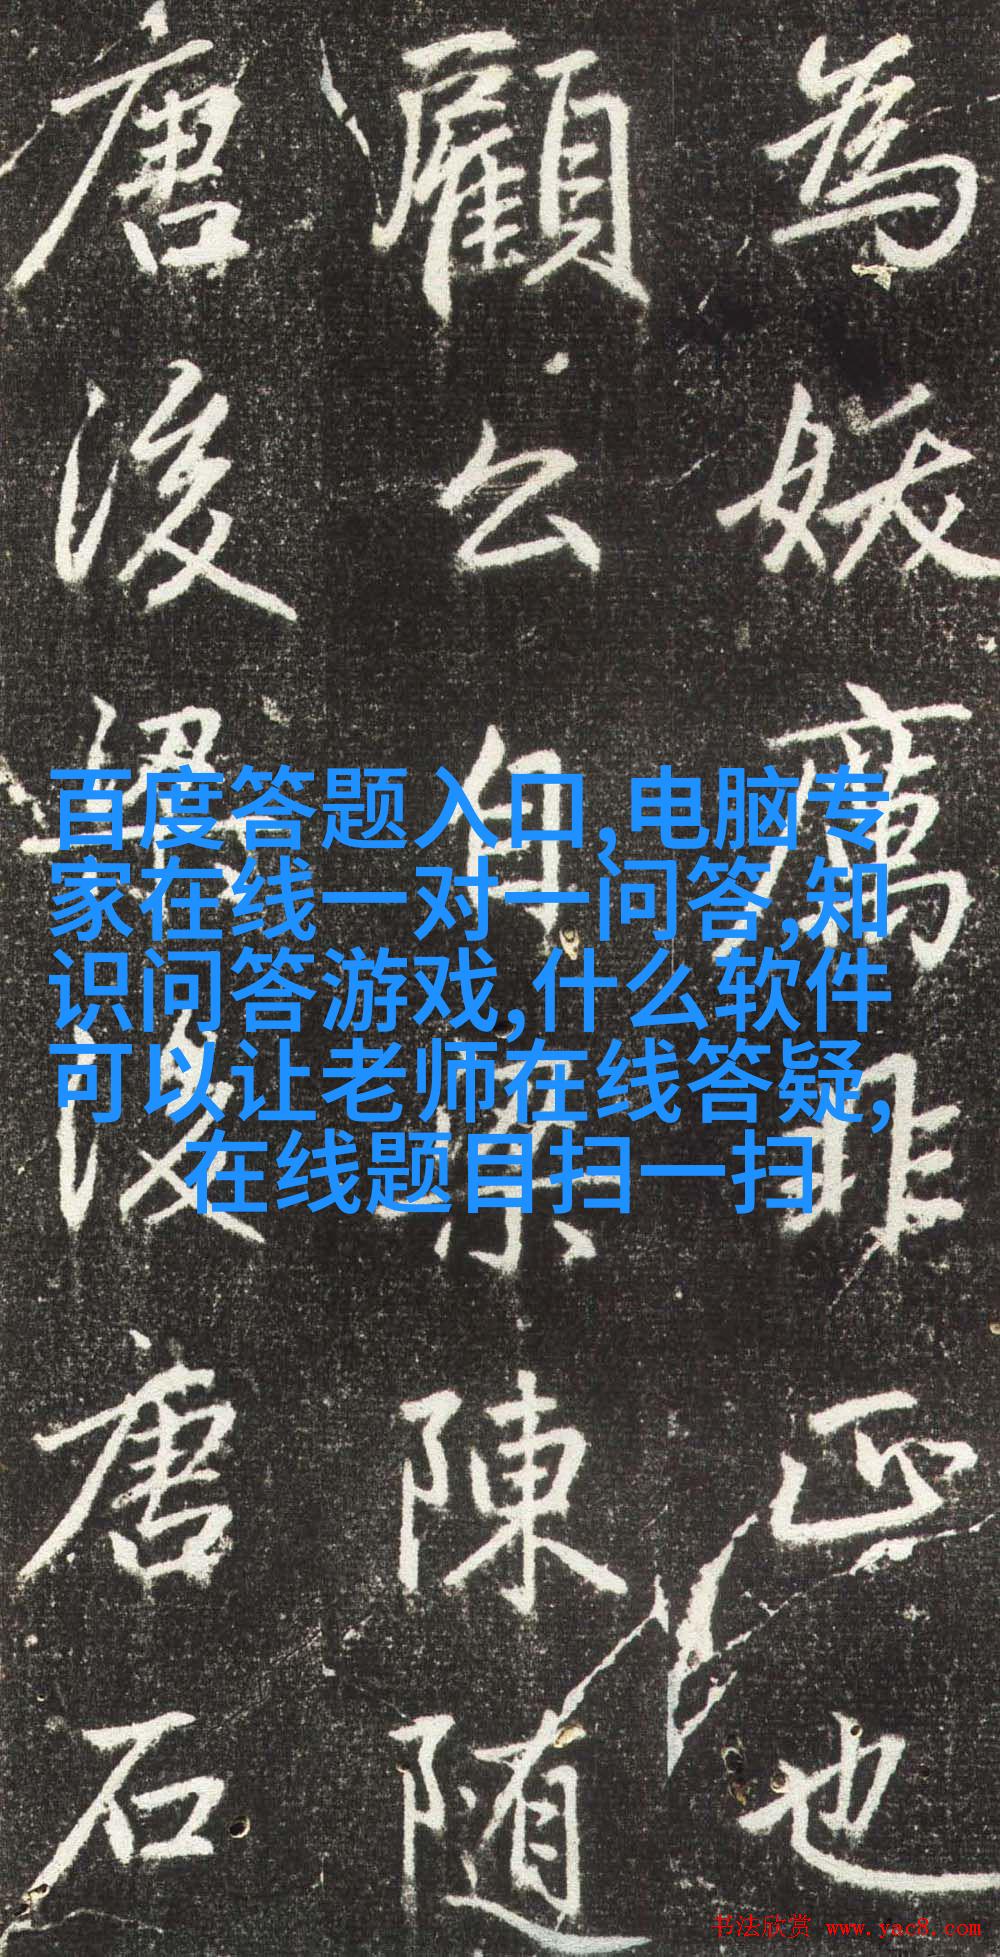 為妖厲非正也
顧公自梁陳随
唐後梁後唐石
百度答题入口,电脑专
家在线一对一问答,知
识问答游戏,什么软件
可以让老师在线答疑,
在线题目扫一扫
书法欣赏 www.yac8.com